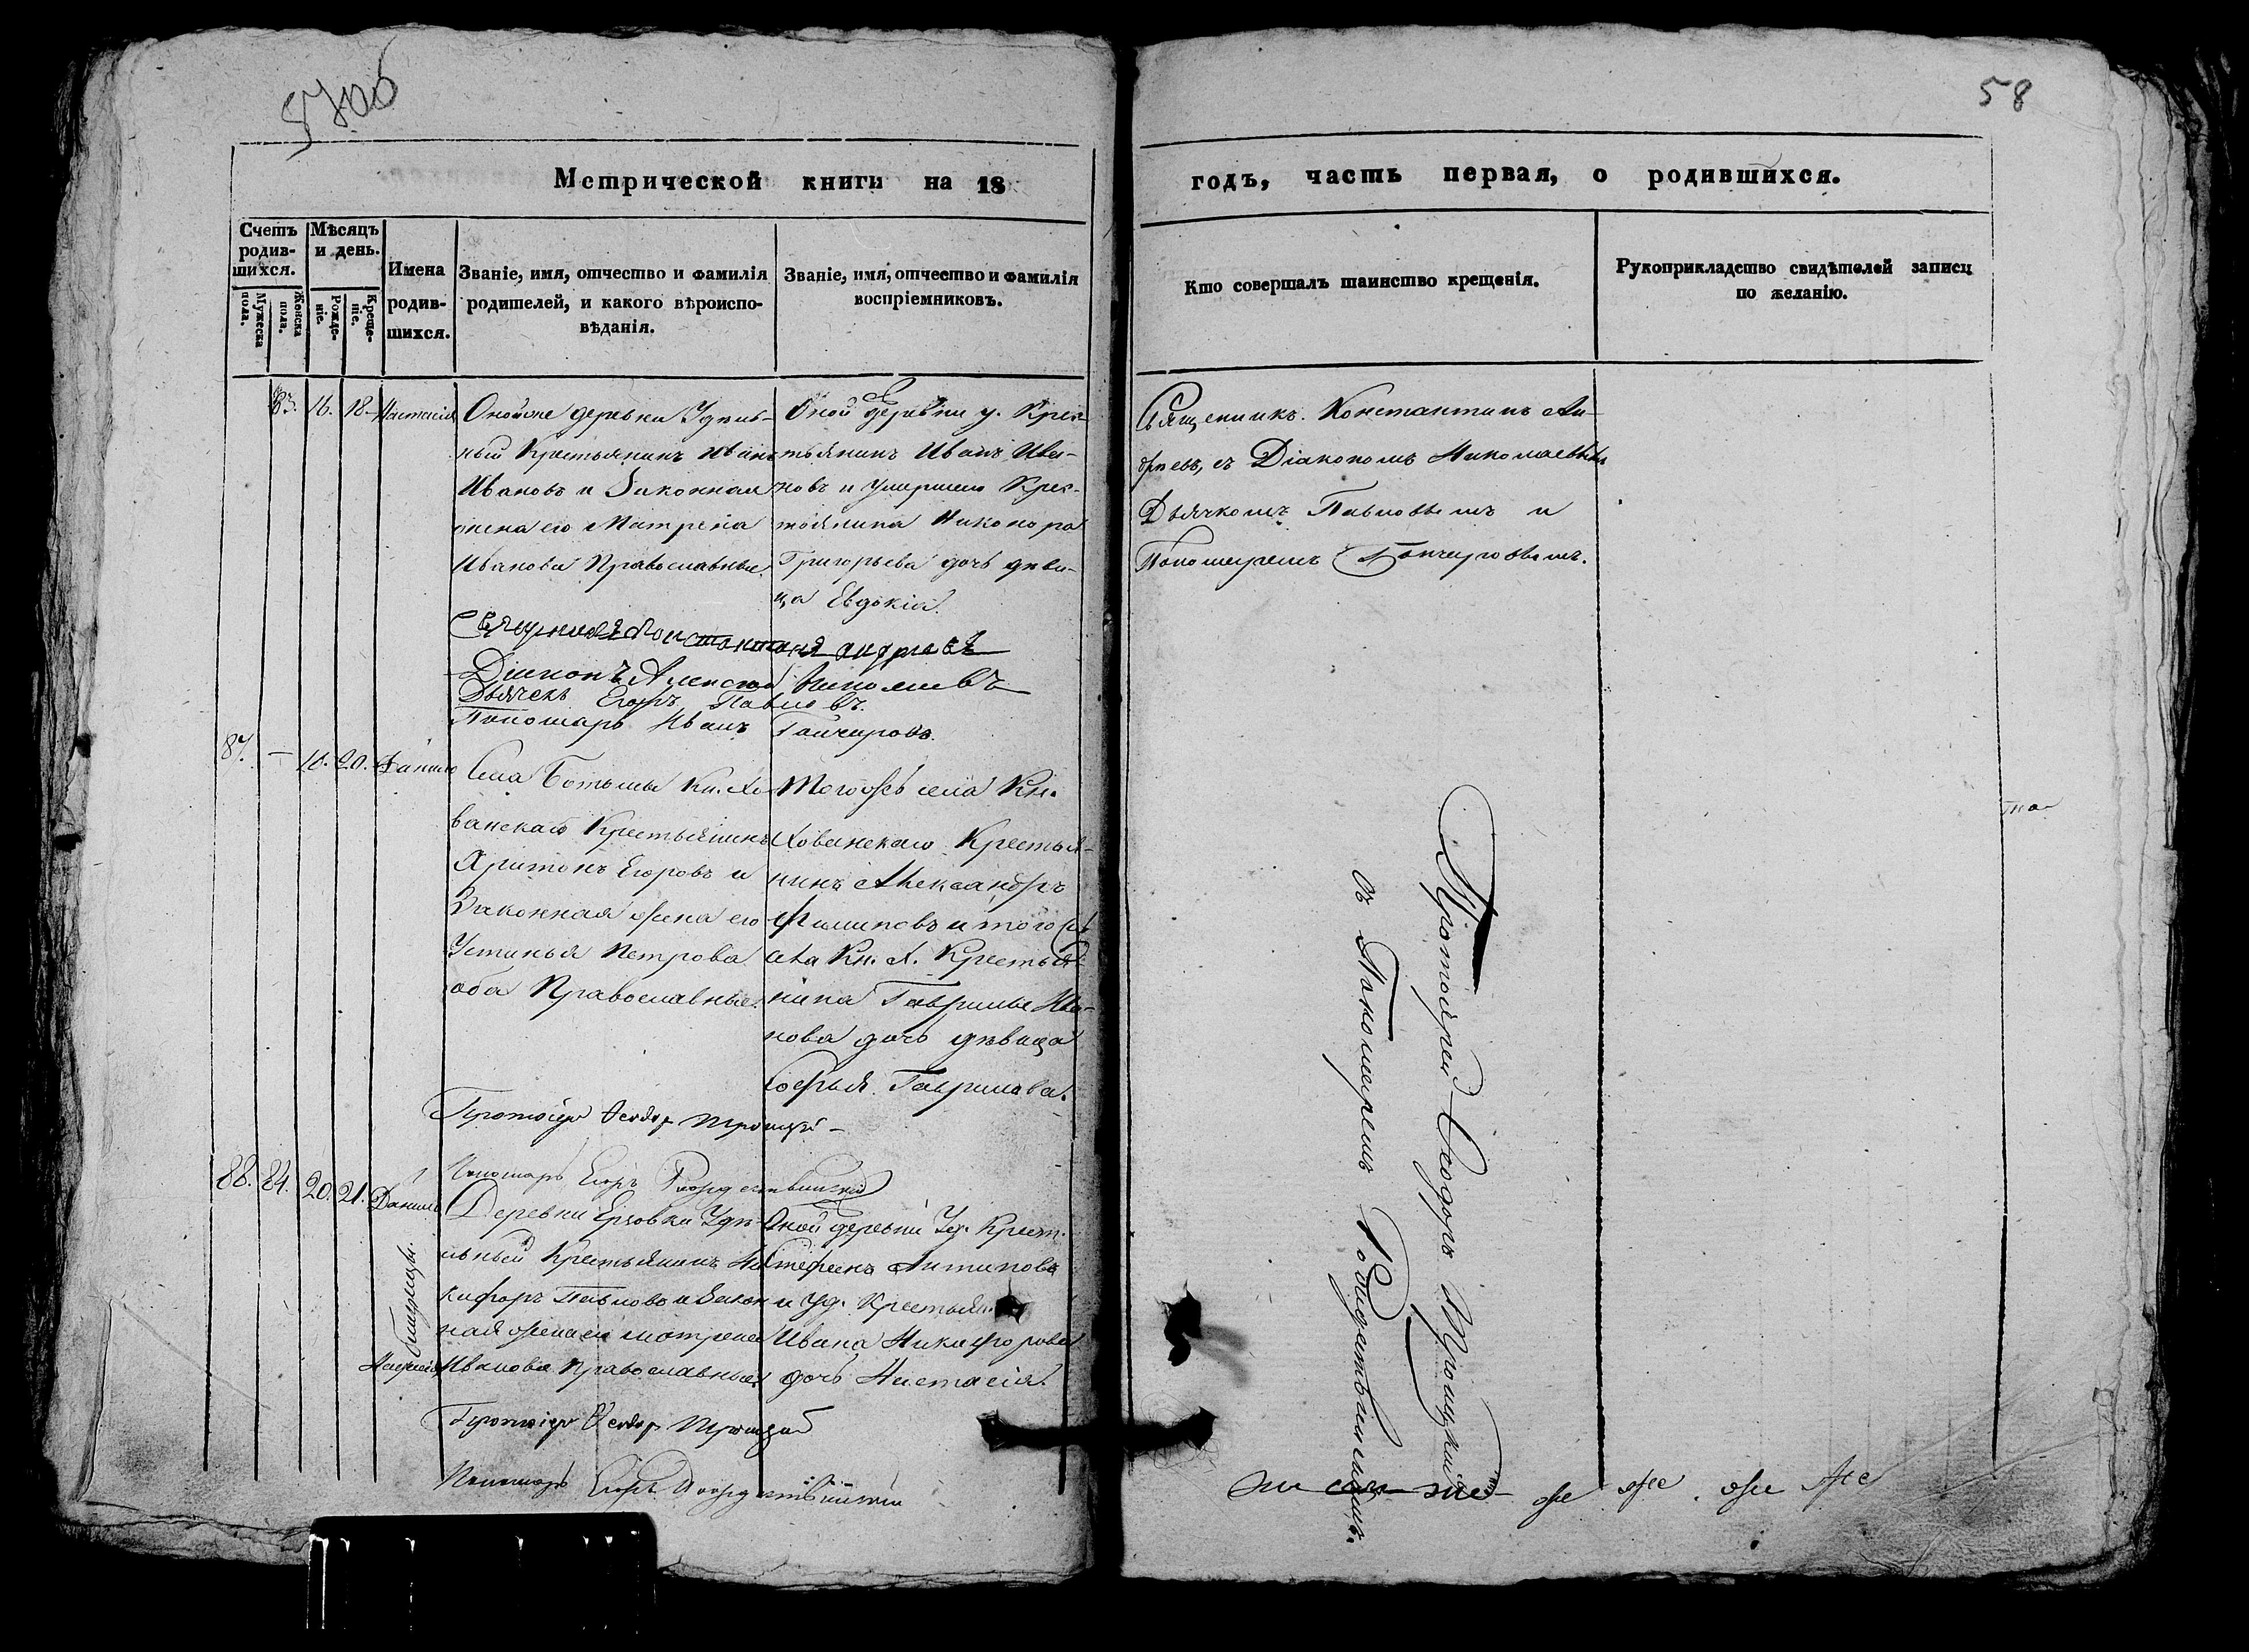 57об
58
Метрической книги на 18
годъ, часть первая, о родившихся.
Счетъ родив-
шихся.
Мужеска пола.
Женска пола.
Мѣсяцъ и день.
Рожде-
ніе.
Креще-
ніе.
Имена родив-
шихся.
Званіе, имя, отчество и фамилія
родителей, и какого вѣроиспо-
вѣданія.
Званіе, имя, отчество и фамилія
воспріемниковъ.
Кто совершалъ таинство крещенія.
Рукоприкладство свидѣтелей записи
по желанію.
83. 16. 18. Настасія
Онойже деревни Удѣль-
ный Крестьянинъ Иванъ
Ивановъ и Законная
жена его Матрена
Иванова Православные.
Оной деревни у. Крес-
тьянинъ Иванъ Ива-
новъ и умершего Крес-
тьянина Никонора
Григорьева дочь дѣви-
ца Евдокія.
Священникъ Константинъ Ан-
дреевъ, съ Діакономъ Николаевымъ
Дьячкомъ Павловымъ и
Пономаремъ Гончаровымъ.
Священникъ Константинъ Андреевъ
Діаконъ Алексей Николаевъ
Дьячекъ Егоръ Павловъ.
Пономарь Иванъ Гончаровъ.
87. — 10. 20. Данило
Села Ботьмы Кн. Хо-
ванскаго Крестьянинъ
Харитонъ Егоровъ и
Законная жена его
Устинья Петрова
оба Православные.
Тогожъ села Кн.
Хованскаго Крестья-
нинъ Александръ
Филиповъ и того
села Кн. Х. Крестья-
нина Гаврилы Ива-
нова дочь дѣвица
Софья Гаврилова.
Протоіерей Ѳеодоръ Троицкій
Пономарь Егоръ Рождественскій
88. 84. 20. 21. Данило
близнецы.
Настасія
Деревни Ерзовки Удѣ-
льный Крестьянинъ Ни-
кифоръ Павловъ и Закон-
ная жена его Матрена
Иванова Православные.
Оной деревни Уд. Крест.
Стефанъ Антиповъ
и Уд. Крестьян.
Ивана Никифорова
дочь Настасія.
Протоіерей Ѳеодоръ Троицкій
Пономарь Егоръ Рождественскій
Протоіерей Ѳеодоръ Троицкій
съ Пономаремъ Рождественскимъ.
же же же же